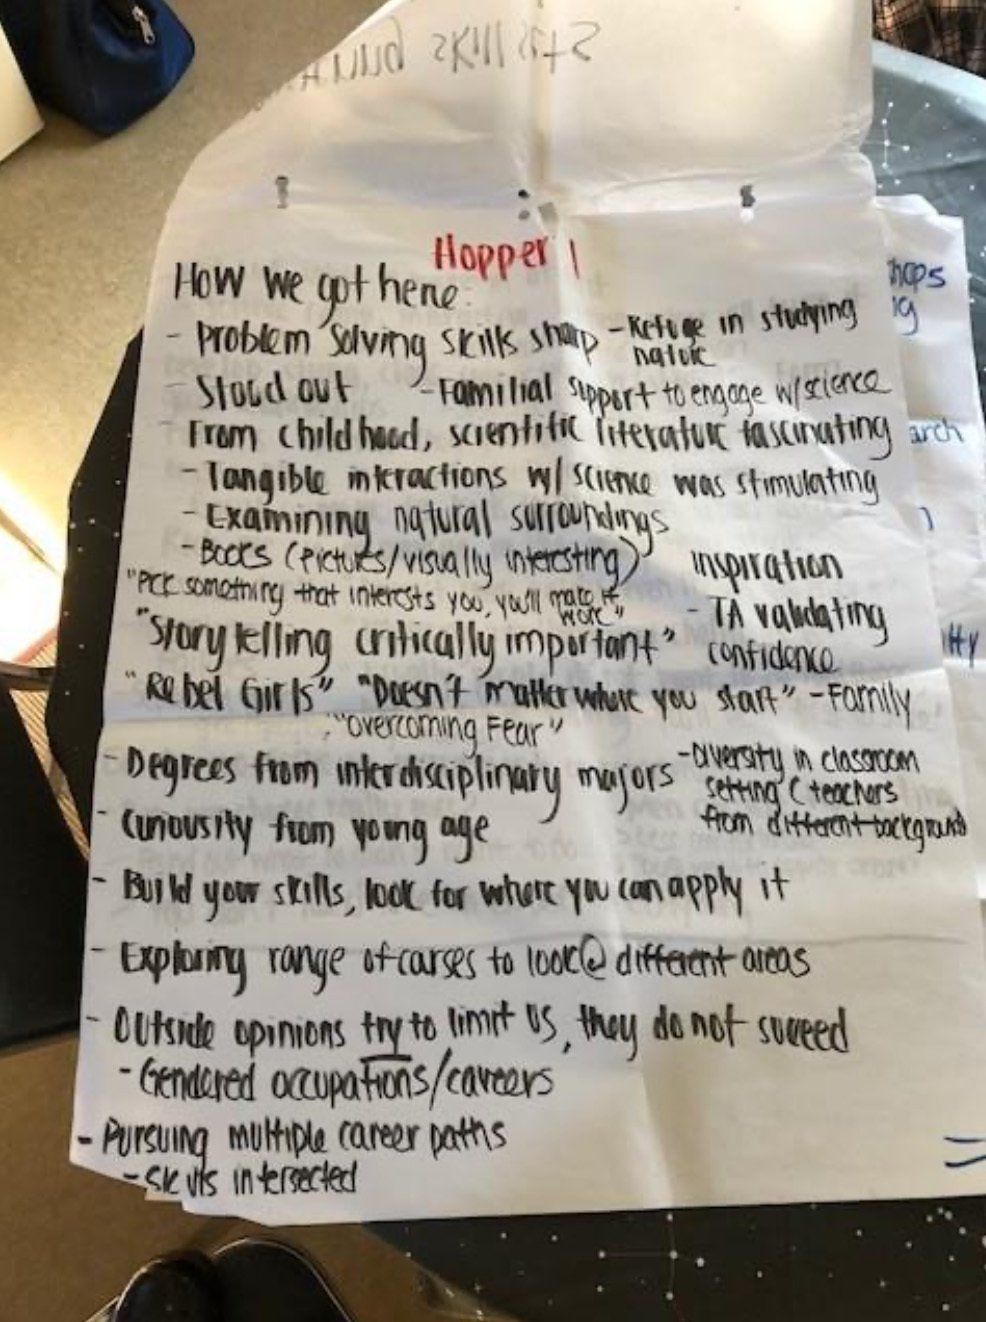 Hopper 1
How we got here:
- Problem solving skills sharp
- Refuge in studying
nature
- Stood out
- Familial support to engage w/science
- From childhood, scientific literature fascinating
- Tangible interactions w/ science was stimulating
- Examining natural surroundings
- Books (pictures/visually interesting)
"Pick something that interests you, you'll make it
work"
Inspiration
- TA validating
confidence
"Storytelling critically important"
"Rebel Girls" "Doesn't matter where you start"
- Family
"overcoming Fear"
- Degrees from interdisciplinary majors
- Diversity in classroom
setting (teachers
from different background
- Curiousity from young age
- Build your skills, look for where you can apply it
- Exploring range of carses to look@ different areas
- Outside opinions try to limit us, they do not succeed
- Gendered occupations/careers
- Pursuing multiple career paths
- Skills intersected
hops
ng
arch